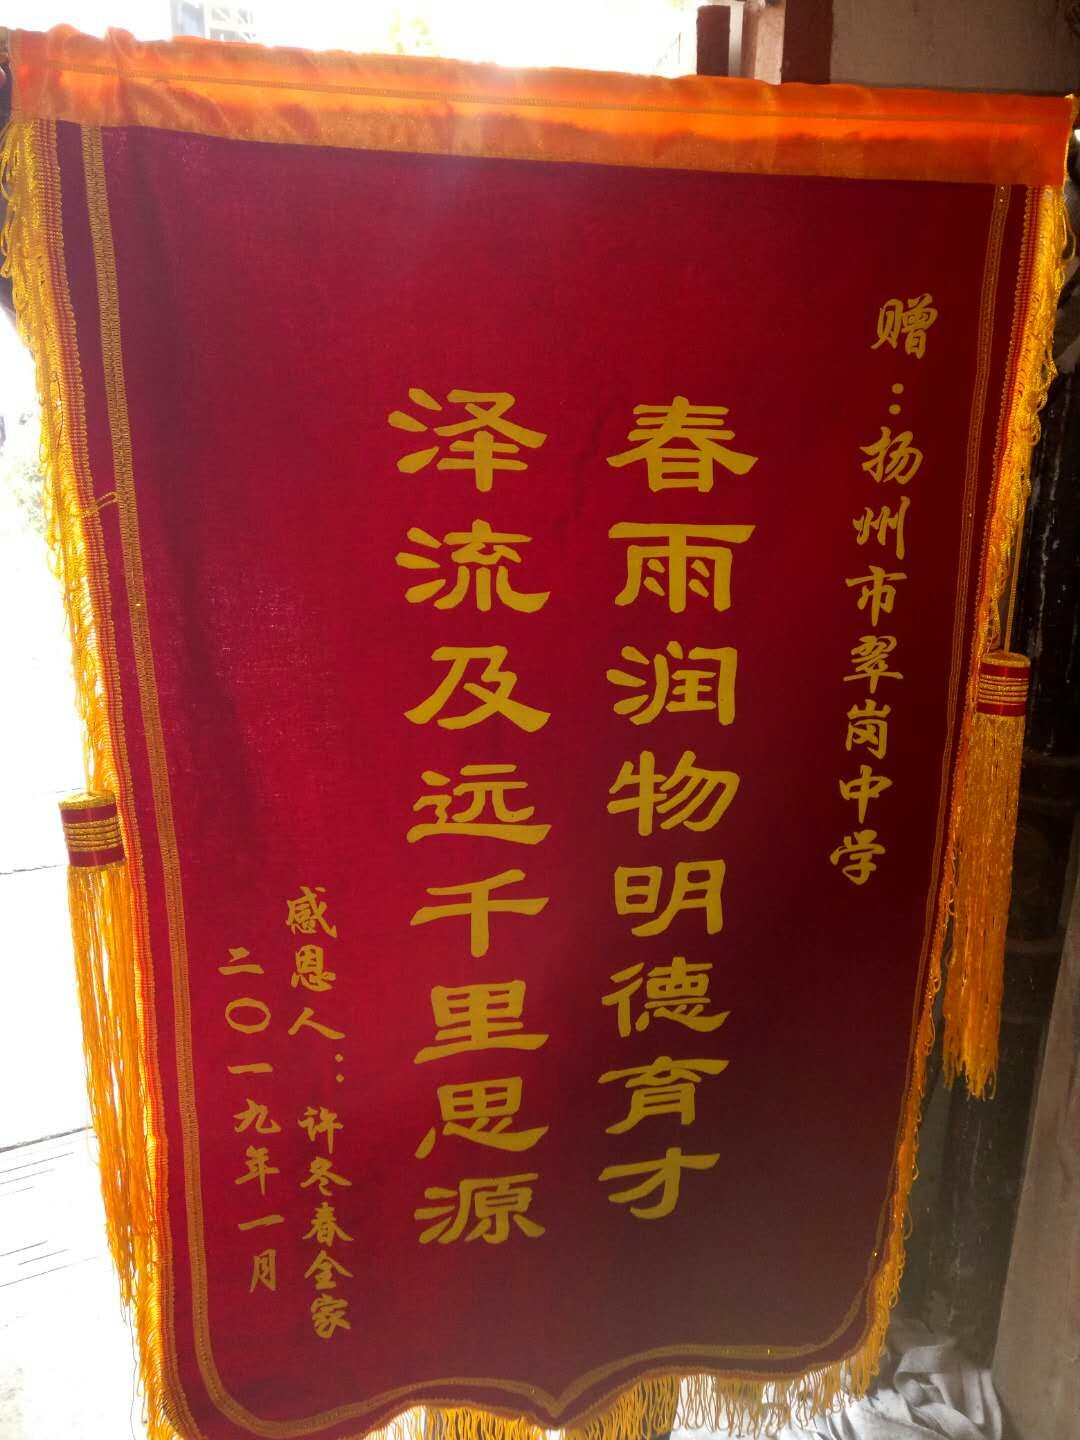 赠：扬州市翠岗中学
春雨润物明德育才
泽流及远千里思源
感恩人：许冬春全家
二〇一九年一月